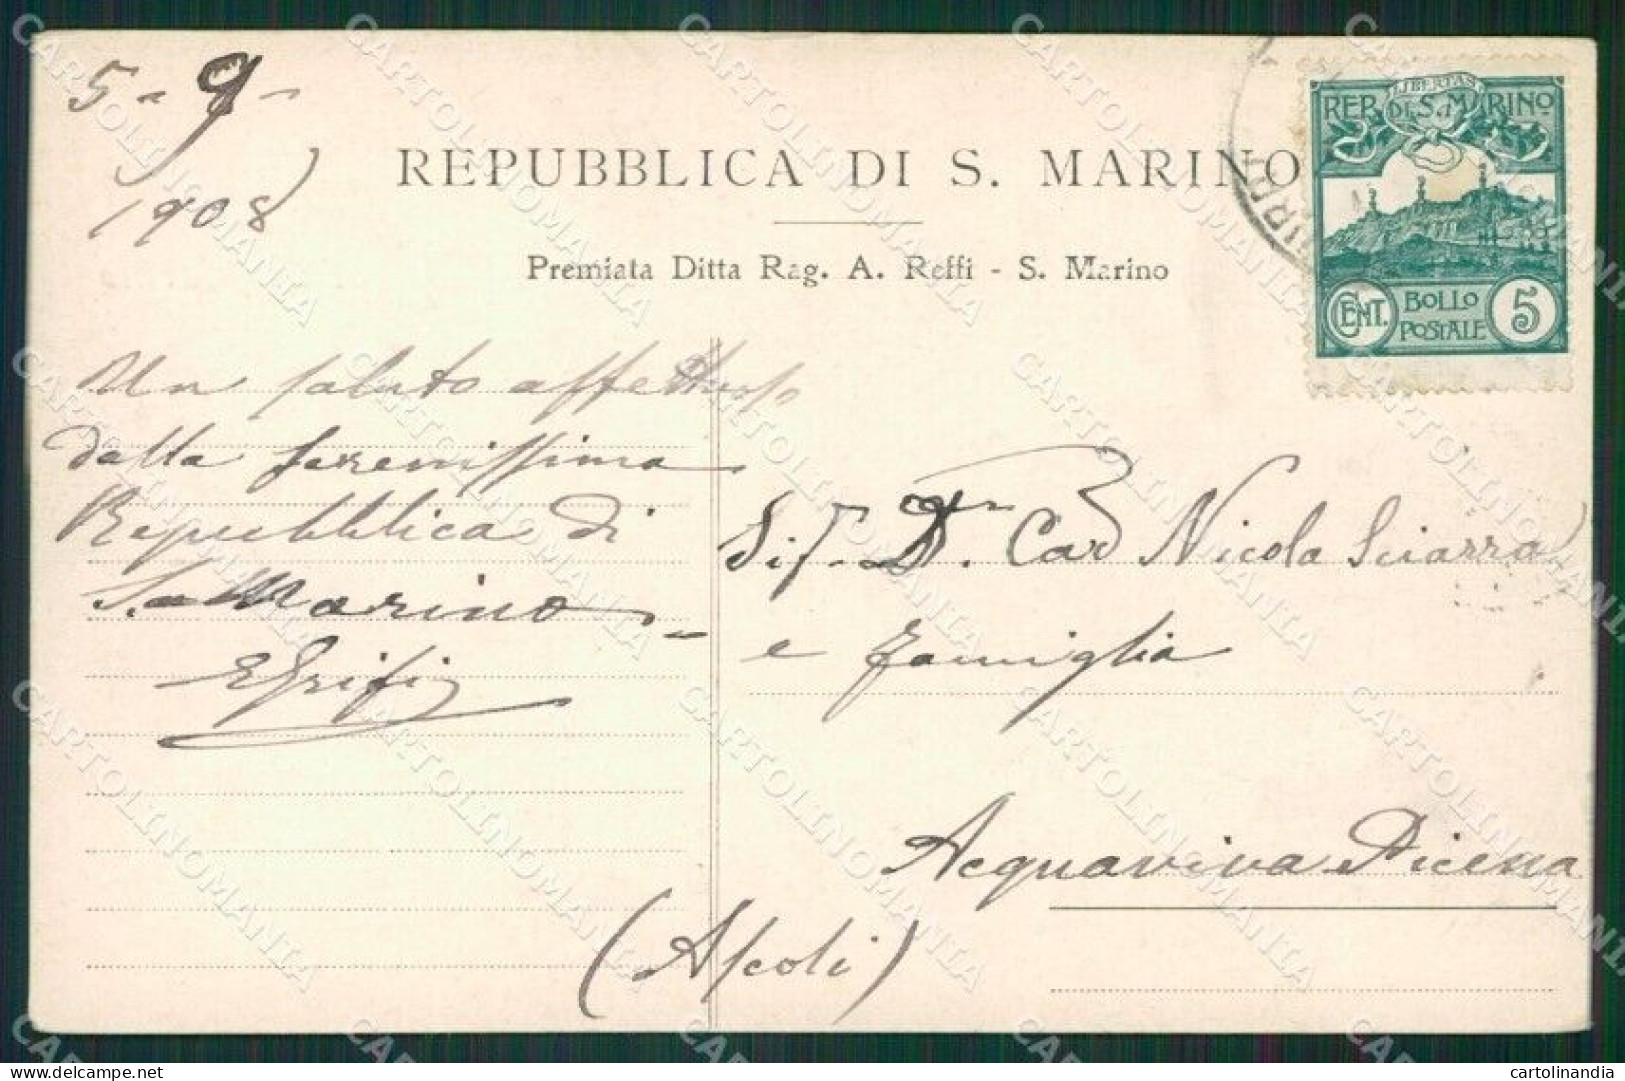 5-9-
1908
REPUBBLICA DI S. MARINO
Premiata Ditta Rag. A. Reffi - S. Marino
LIBERTAS
REP. DI S. MARINO
CENT.
BOLLO
POSTALE
5
Un saluto affettuoso
dalla serenissima
Repubblica di
S. Marino
Sig. Dr. Cav Nicola Sciarra
e famiglia
Acquaviva Picena
(Ascoli)
CARTOLINOMANIA
cartolinandia